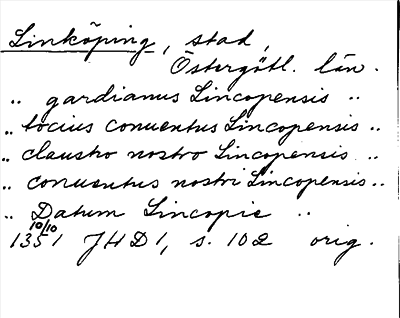 Linköping, stad,
Östergötl. län.
.. gardianus Lincopensis ..
.. tocius conuentus Lincopensis ..
.. claustro nostro Lincopensis ..
.. conuentus nostri Lincopensis ..
.. Datum Lincopie ..
10/10
1351 JHD1, s. 102 orig.